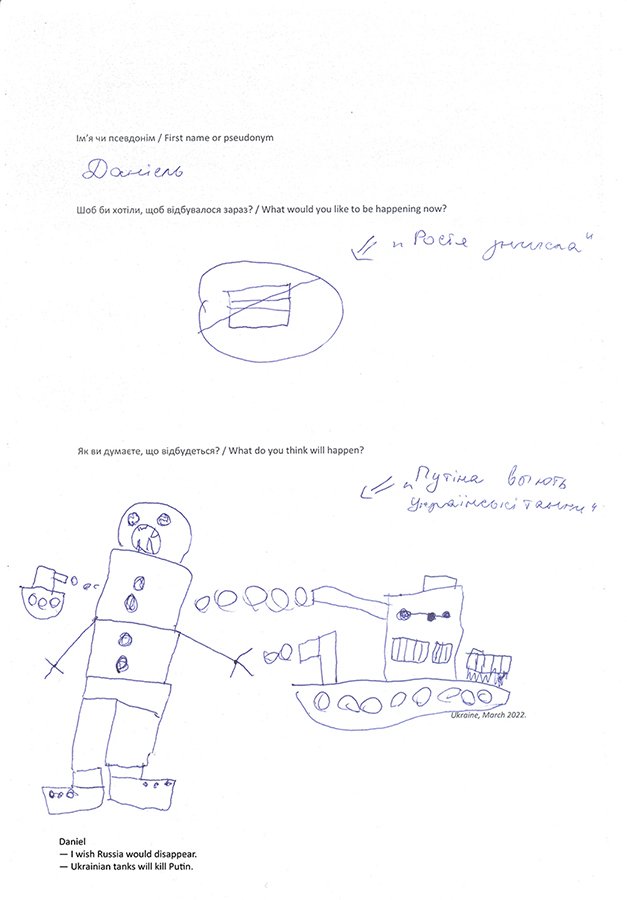 Ім'я чи псевдонім / First name or pseudonym
Даніель
Шоб би хотіли, щоб відбувалося зараз? / What would you like to be happening now?
"Росія зникла"
Як ви думаєте, що відбудеться? / What do you think will happen?
"Путіна вб'ють
українські танки"
Ukraine, March 2022.
Daniel
— I wish Russia would disappear.
— Ukrainian tanks will kill Putin.